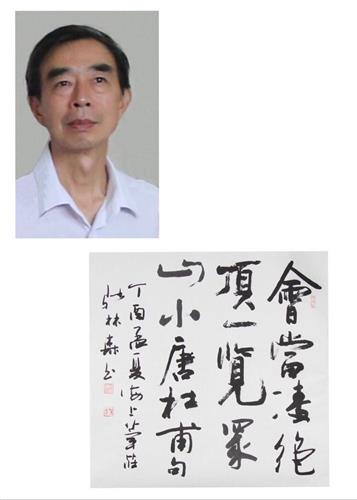 會當凌絕
頂一覽眾
山小唐杜甫句
丁酉孟夏海上莊
林森书